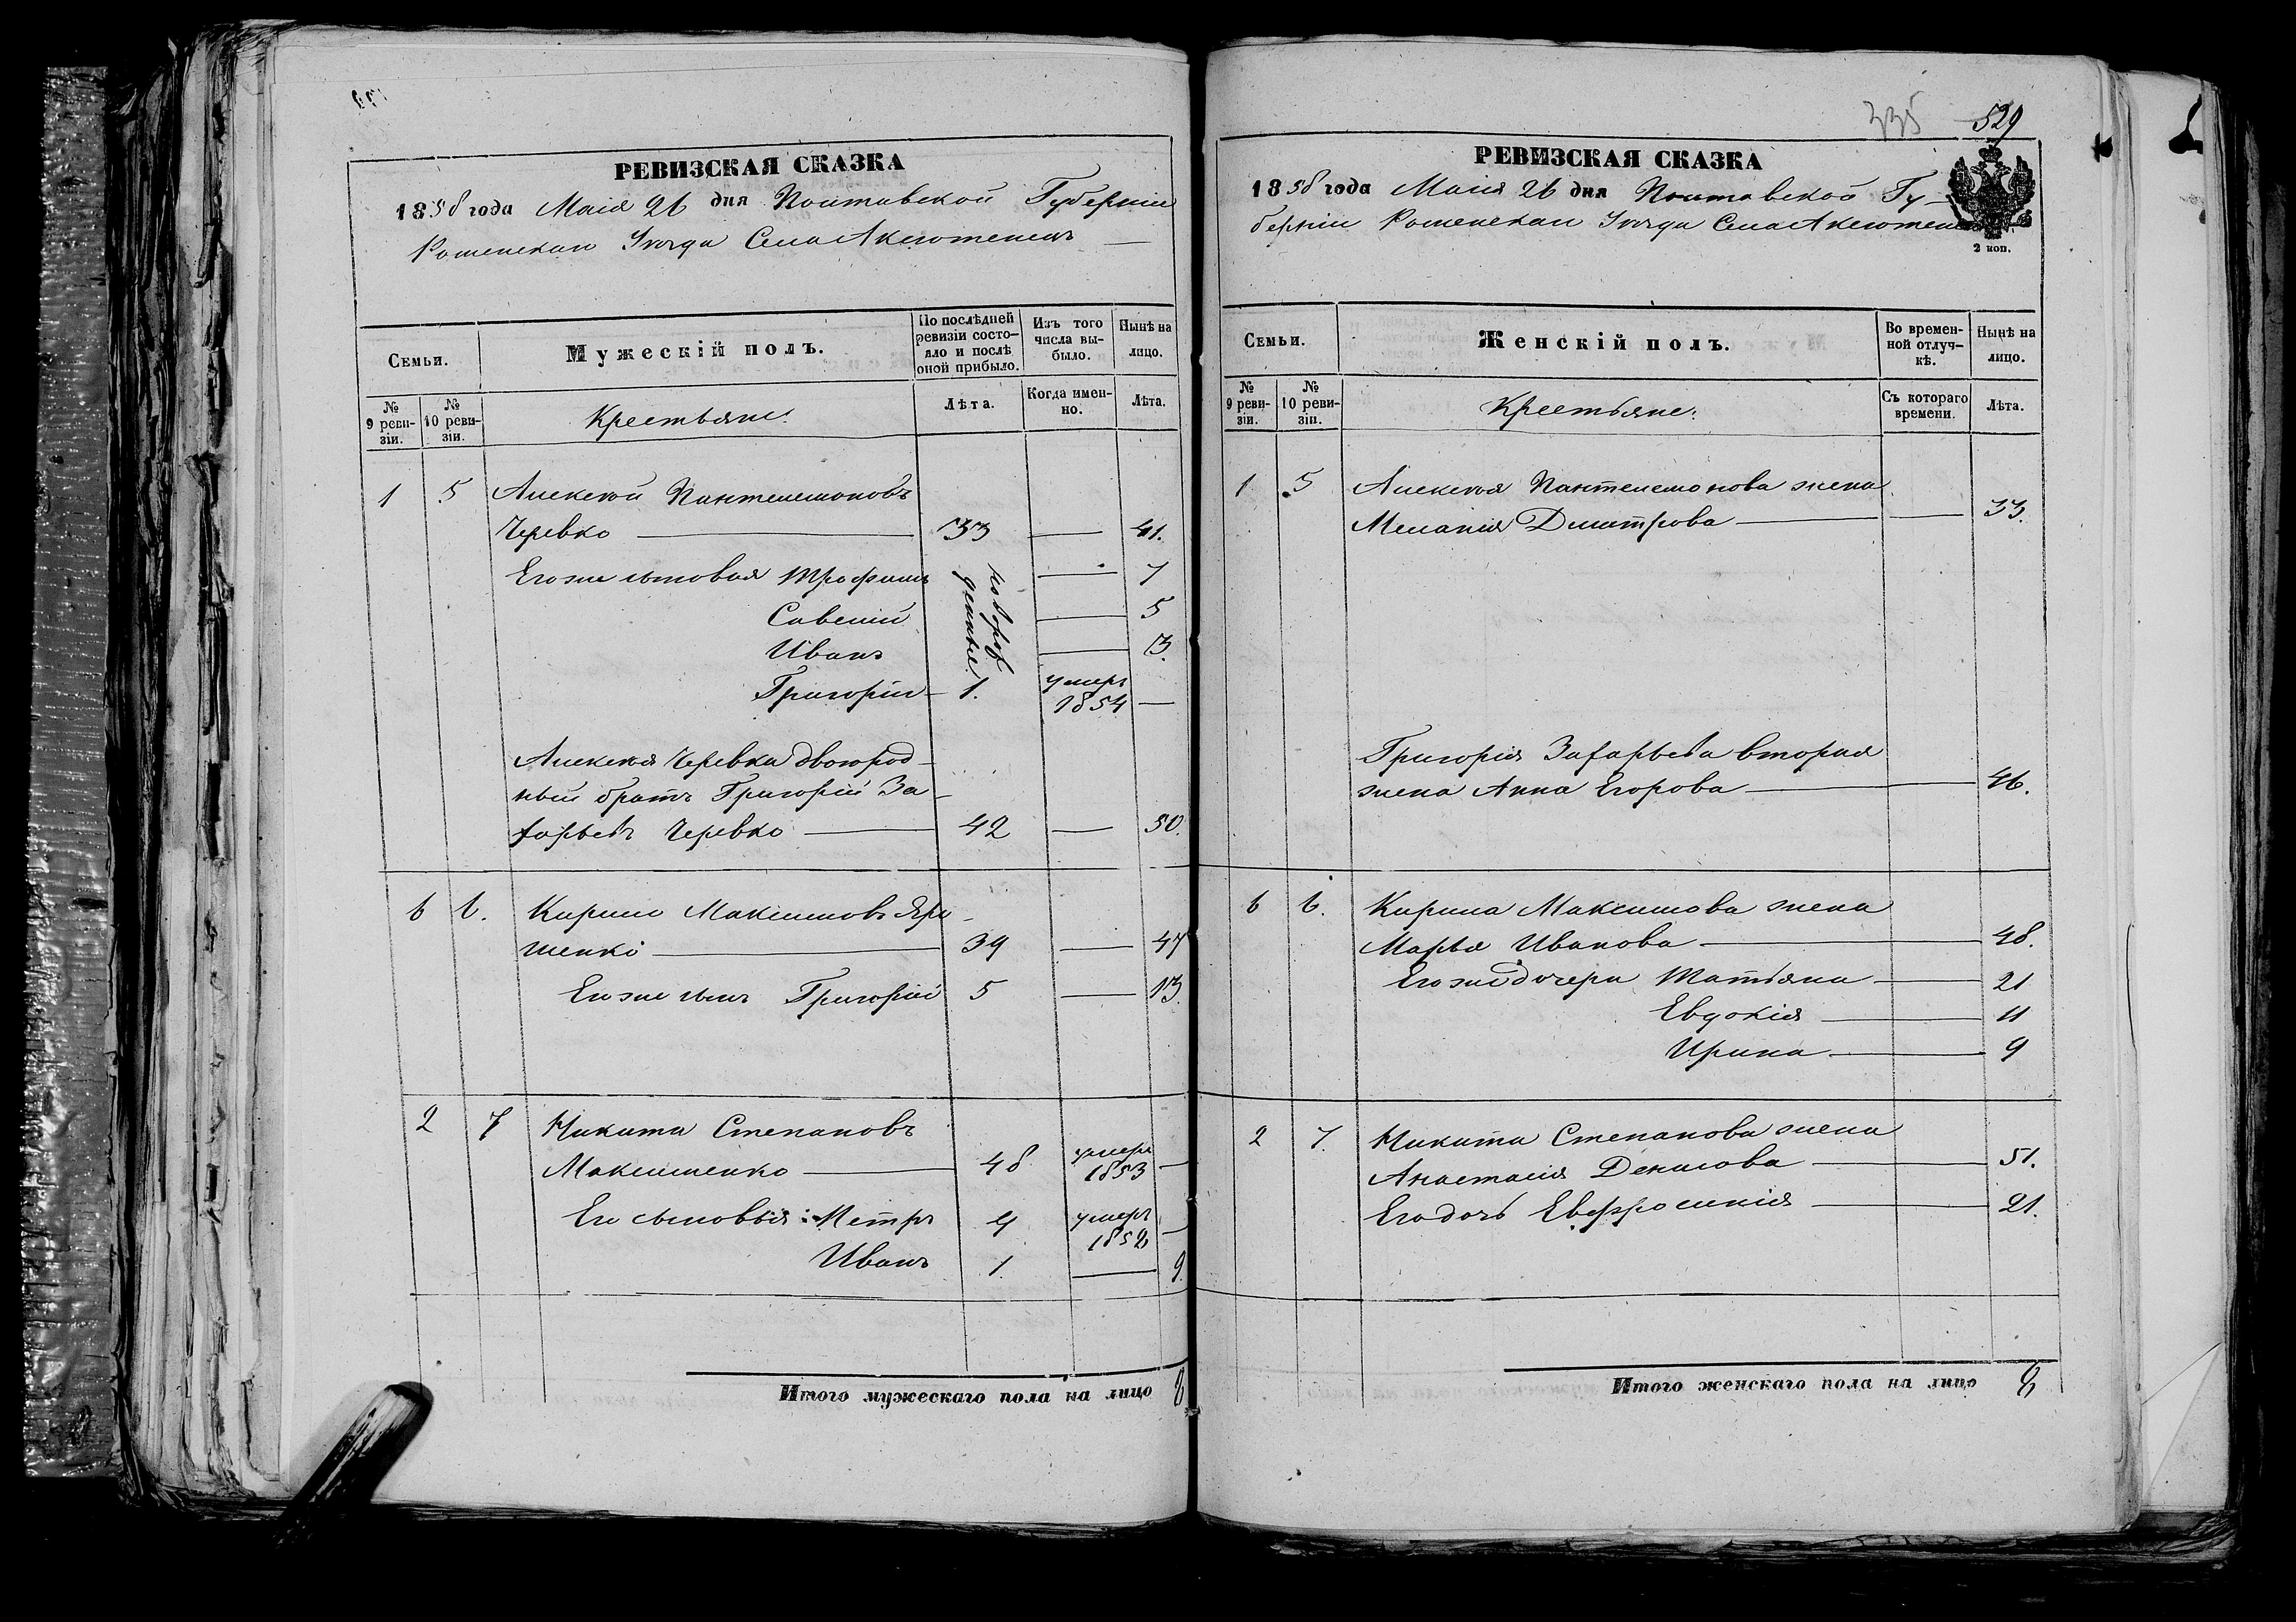 РЕВИЗСКАЯ СКАЗКА
1858 года Маія 26 дня Полтавской Губерніи
Роменскаго Уѣзда Села Аксютенецъ
Семьи.
Мужескій полъ.
По послѣдней ревизіи состояло и послѣ оной прибыло.
Изъ того числа выбыло.
Нынѣ на лицо.
№ 9 ревизіи.
№ 10 ревизіи.
Крестьяне.
Лѣта.
Когда именно.
Лѣта.
1 5 Алексѣй Пантелемоновъ
Черевко 33 — 41.
Его же сыновья Трофимъ новорож — 7
Савелій денные. — 5
Иванъ — 3.
Григорій 1. умеръ 1854 —
Алексѣя Черевка двоюрод-
ный братъ Григорій За-
харьевъ Черевко 42 — 50.
6 6. Кирило Максимовъ Яри-
шенко 39 — 47
Его же сынъ Григорій 5 — 13.
2 7 Никита Степановъ
Максименко 48 умеръ 1853 —
Его сыновья: Петръ 4 умеръ 1852 —
Иванъ 1. — 9.
Итого мужескаго пола на лицо 8
335 529
РЕВИЗСКАЯ СКАЗКА
1858 года Маія 26 дня Полтавской Гу-
берніи Роменскаго Уѣзда Села Аксютенецъ
2 коп.
Семьи.
Женскій полъ.
Во временной отлучкѣ.
Нынѣ на лицо.
№ 9 ревизіи.
№ 10 ревизіи.
Крестьяне.
Съ котораго времени.
Лѣта.
1 5 Алексѣя Пантелемонова жена
Меланія Димитрова — 33.
Григорія Захарьева вторая
жена Анна Егорова — 46.
6 6. Кирила Максимова жена
Марья Иванова — 48.
Его же дочери Татьяна — 21
Евдокія — 11
Ирина — 9
2 7. Никиты Степанова жена
Анастасія Денисова — 51.
Его дочь Евфросинія — 21.
Итого женскаго пола на лицо 8